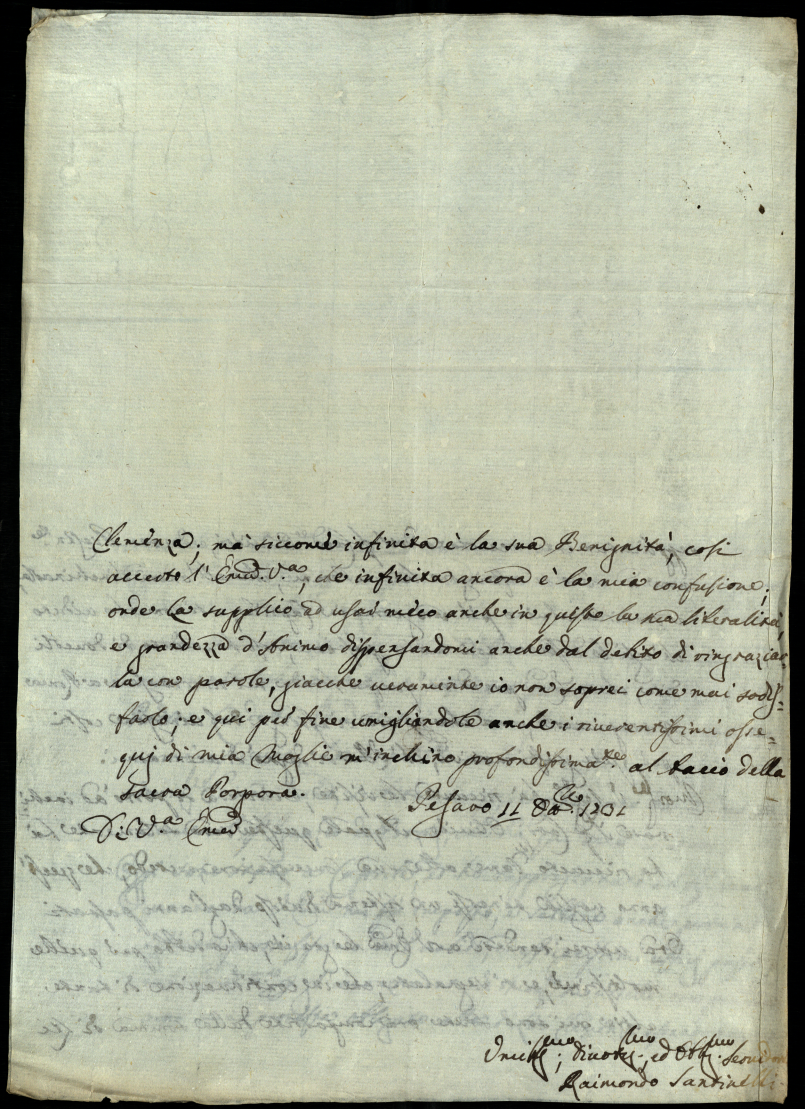 Clemenza; mà siccome infinita è la sua Benignità, così
accerto l'Emã. V.ª, che infinita ancora è la mia confusione;
onde La supplico ad usar meco anche in questo la sua liberalità,
e grandezza d'Animo dispensandomi anche dal debito di ringraziar-
la con parole, giacche veramente io non saprei come mai sodis-
farlo; e qui per fine umigliandole anche i riverentissimi osse-
quj di mia Moglie m'inchino profondissima.te al bacio della
sacra Porpora.
Pesaro 11
Di V.ª Emã
Umil.mo, Divot.mo, ed Obb.mo Servidor
Raimondo Santinelli